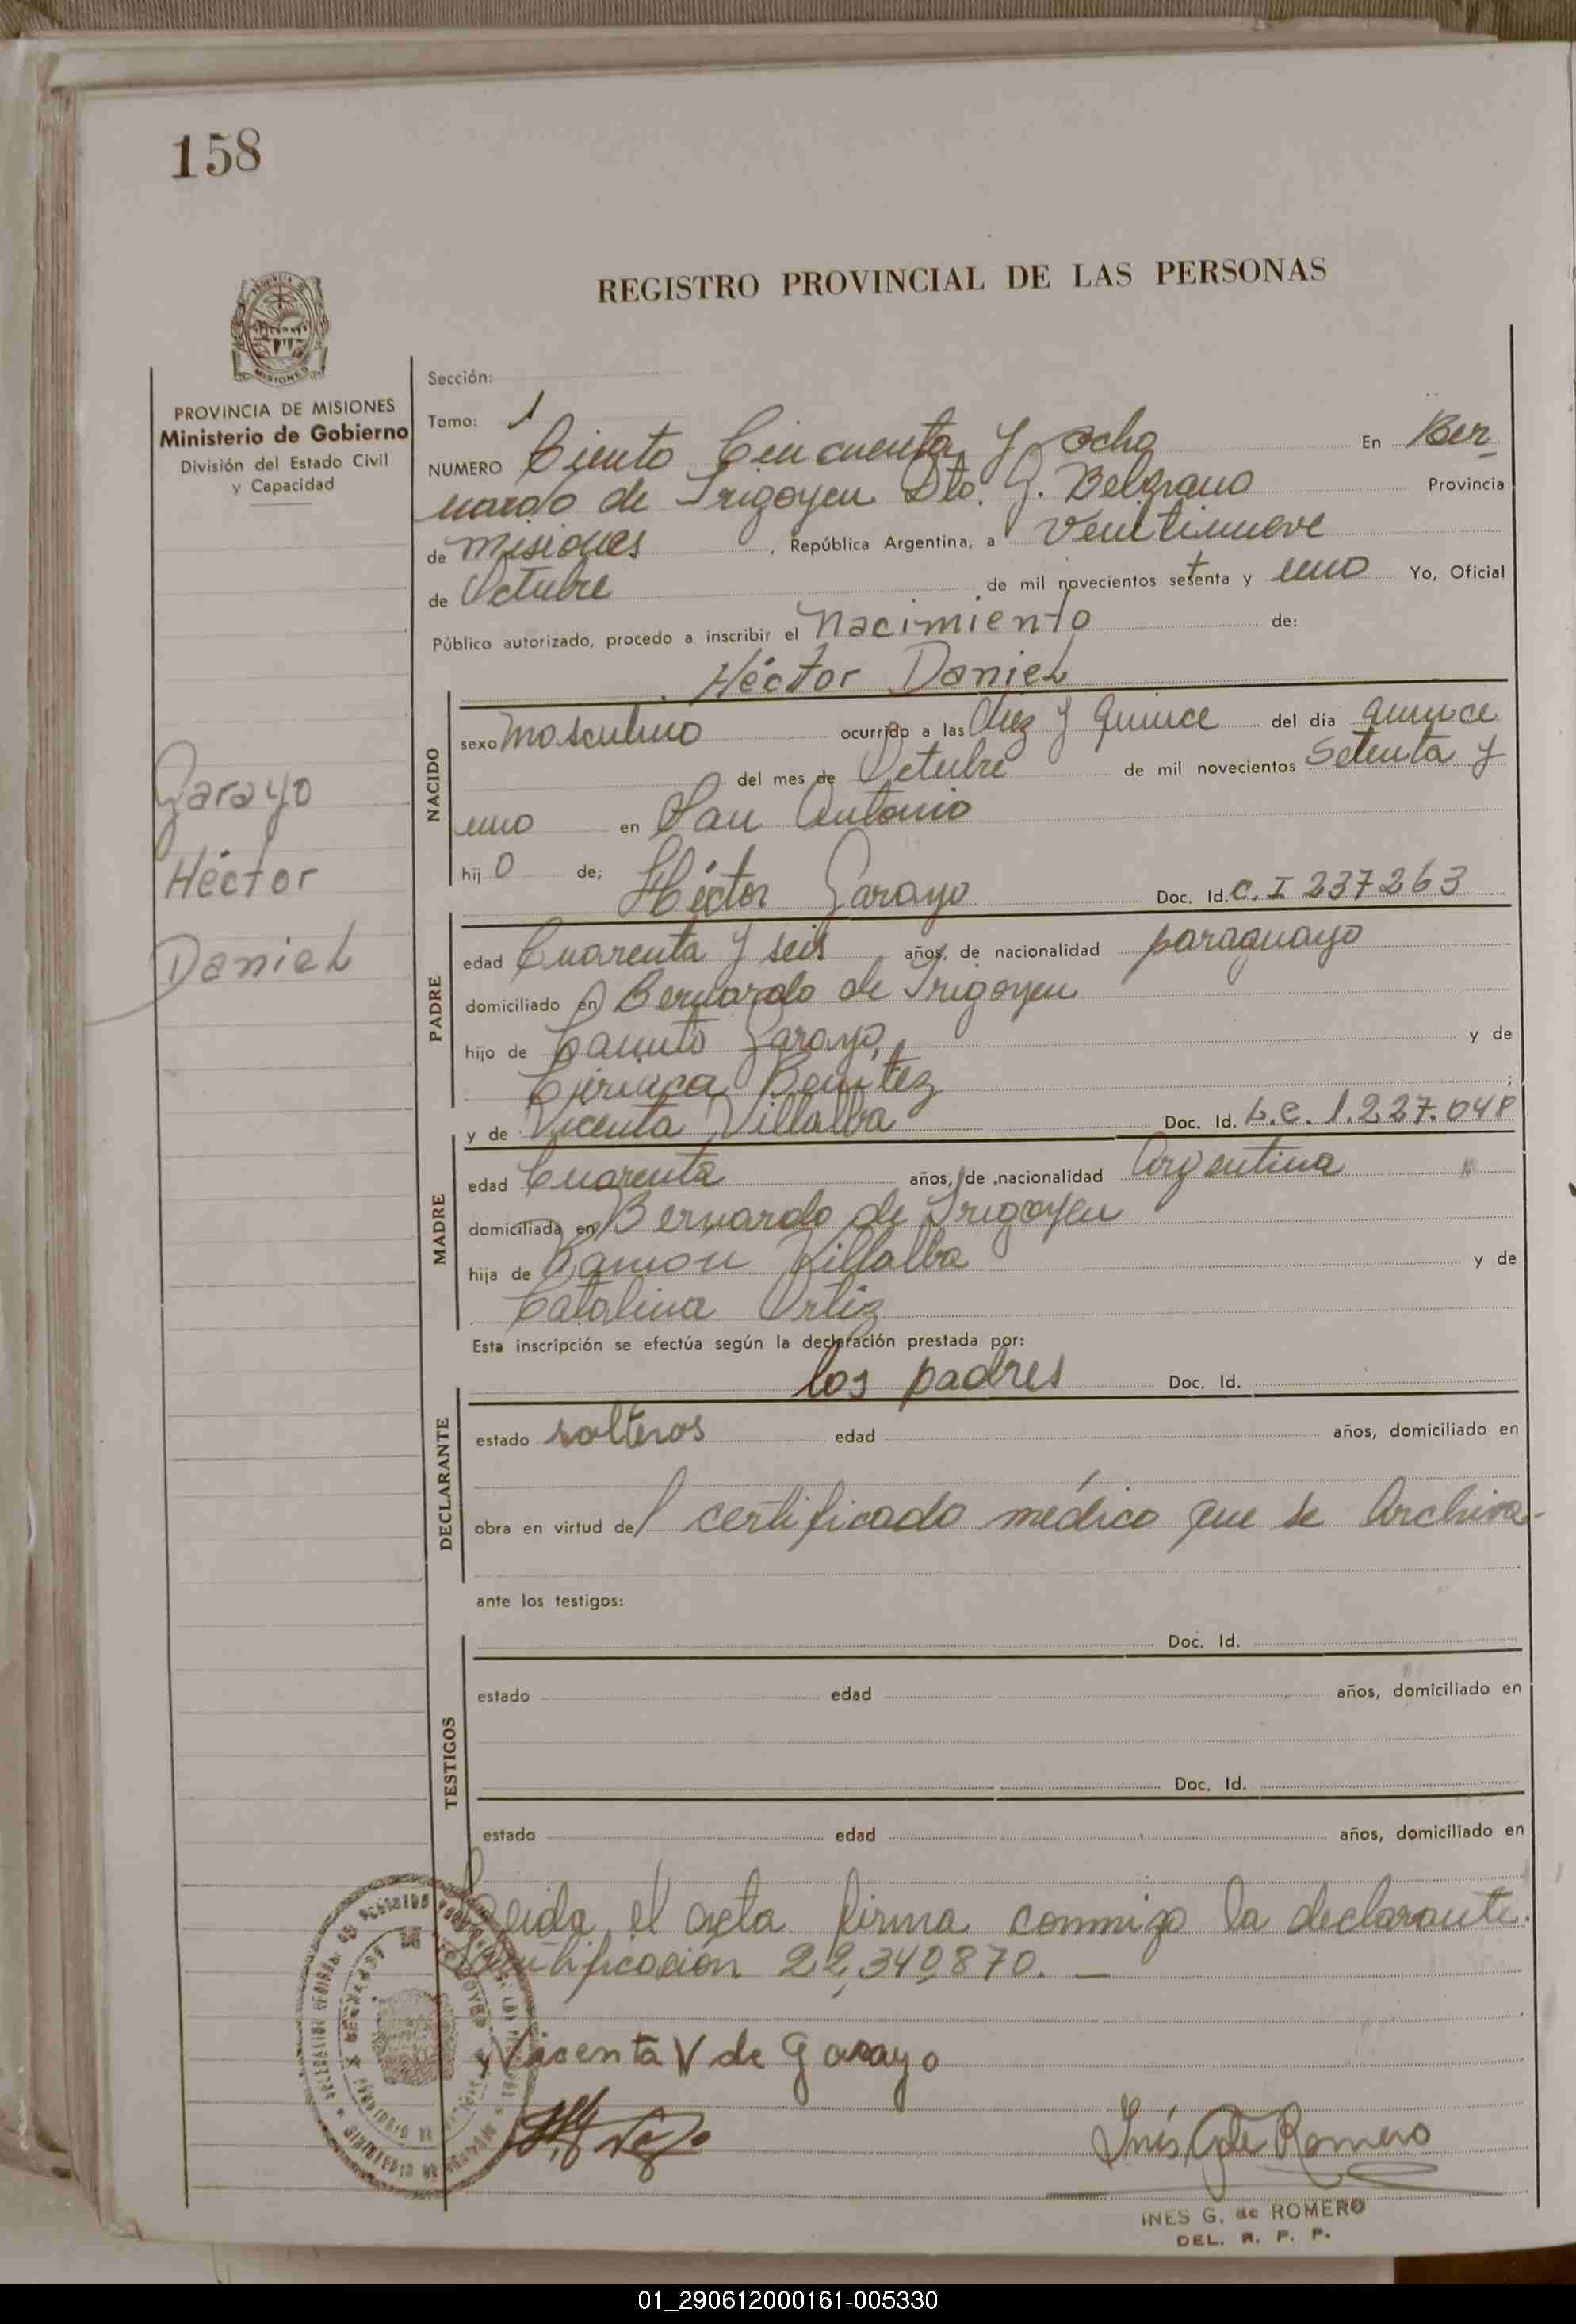 158
REGISTRO PROVINCIAL DE LAS PERSONAS
MISIONES
PROVINCIA DE MISIONES
Ministerio de Gobierno
División del Estado Civil
y Capacidad
Garayo
Héctor
Daniel
Sección:
Tomo: 1
NUMERO Ciento Cincuenta y ocho En Ber-
nardo de Irigoyen Dto. G. Belgrano Provincia
de Misiones, República Argentina, a Veintinueve
de Octubre de mil novecientos setenta y uno Yo, Oficial
Público autorizado, procedo a inscribir el Nacimiento de:
Héctor Daniel
NACIDO
sexo Masculino ocurrido a las diez y quince del día quince
del mes de Octubre de mil novecientos Setenta y
uno en San Antonio
hijo de; Héctor Garayo Doc. Id. C. I 237263
PADRE
edad Cuarenta y seis años, de nacionalidad paraguayo
domiciliado en Bernardo de Irigoyen
hijo de Canuto Garayo, y de
Ciriaca Benitez;
y de Vicenta Villalba Doc. Id. L.C. 1.227.048
MADRE
edad Cuarenta años, de nacionalidad Argentina
domiciliada en Bernardo de Irigoyen
hija de Ramón Villalba y de
Catalina Ortiz
Esta inscripción se efectúa según la declaración prestada por:
los padres Doc. Id.
DECLARANTE
estado solteros edad años, domiciliado en
obra en virtud del certificado médico que se Archiva-
ante los testigos:
Doc. Id.
TESTIGOS
estado edad años, domiciliado en
Doc. Id.
estado edad años, domiciliado en
Leida el acta firma conmigo la declarante.
22,340,870. —
Vicenta V de Garayo
Inés G de Romero
INES G. de ROMERO
DEL. R. P. P.
01_290612000161-005330